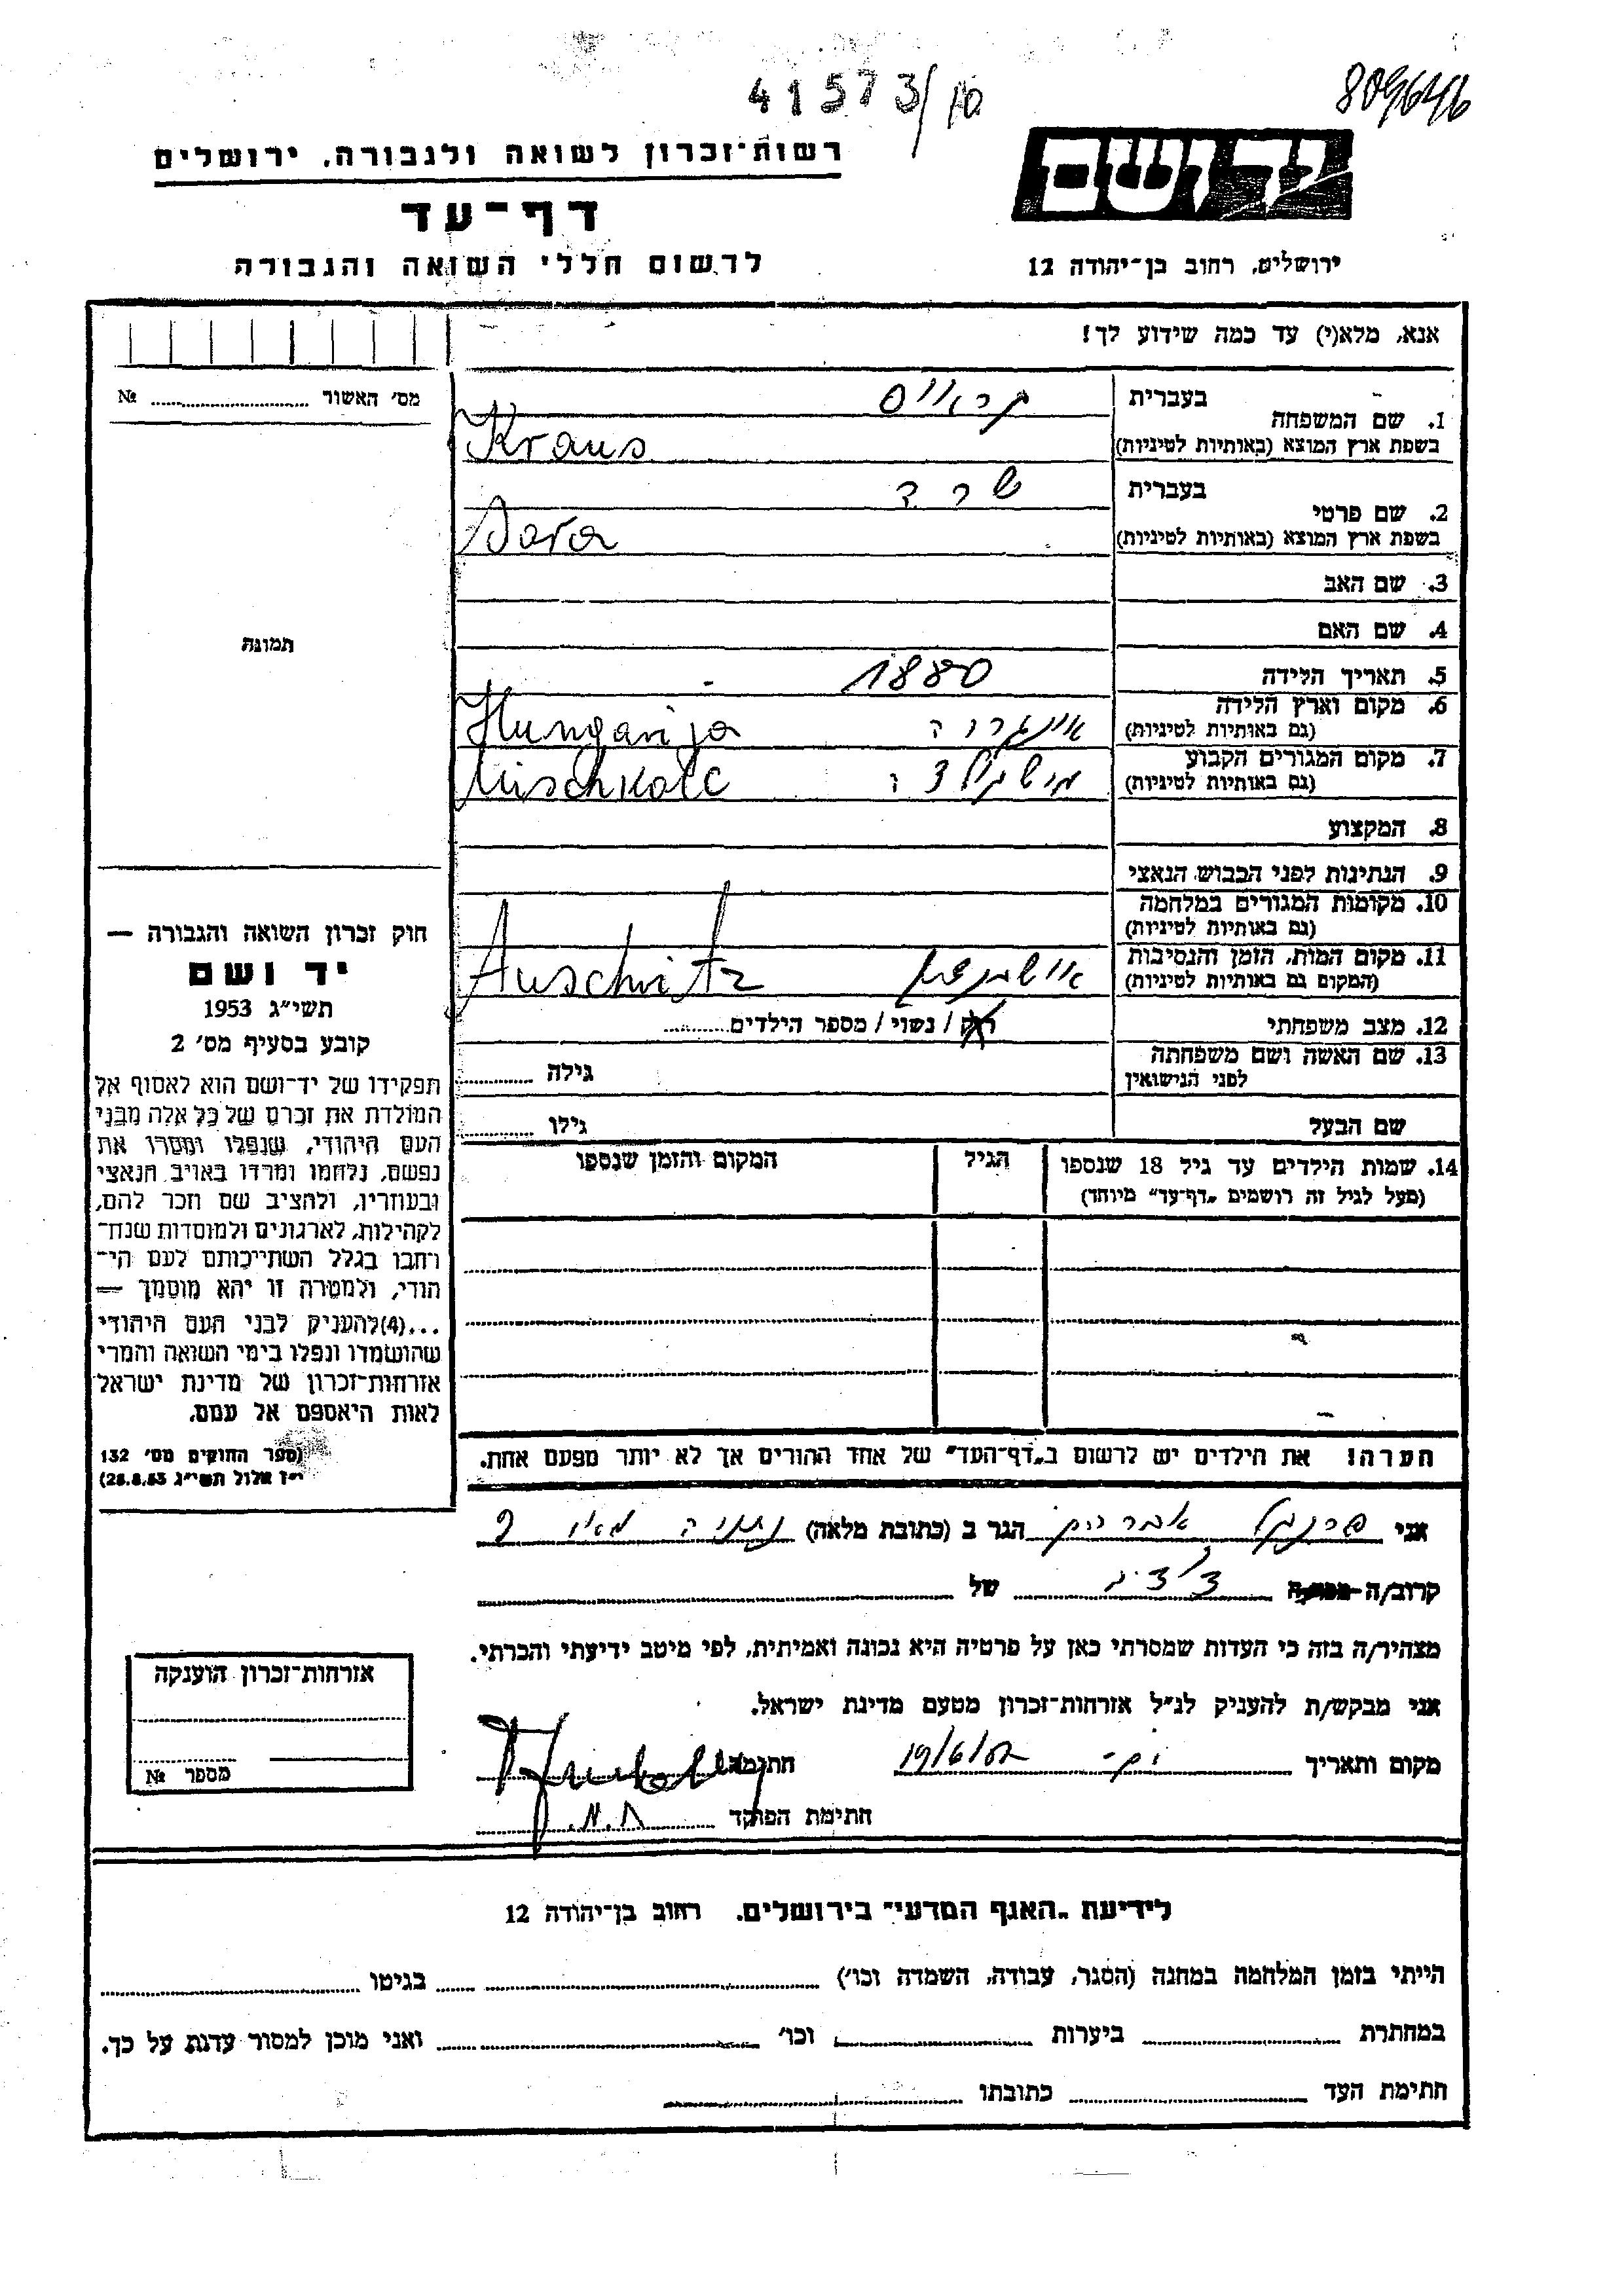 41573/10
809646
רשות־זכרון לשואה ולגבורה, ירושלים
יד ושם
דף־עד
לרשום חללי השואה והגבורה
ירושלים, רחוב בן־יהודה 12
אנא, מלא(י) עד כמה שידוע לך!
מס׳ האשור № 
בעברית קראוס
1. שם המשפחה
בשפת ארץ המוצא (באותיות לטיניות) Kraus
בעברית שרה
2. שם פרטי
בשפת ארץ המוצא (באותיות לטיניות) Sara
3. שם האב
4. שם האם
תמונה
5. תאריך הלידה 1880
6. מקום וארץ הלידה
(גם באותיות לטיניות) Hungarija
7. מקום המגורים הקבוע
(גם באותיות לטיניות) Mischkolc
8. המקצוע
9. הנתינות לפני הכבוש הנאצי
10. מקומות המגורים במלחמה
(גם באותיות לטיניות)
11. מקום המות, הזמן והנסיבות
(המקום גם באותיות לטיניות) אושוויץ Auschwitz
12. מצב משפחתי רוק / נשוי / מספר הילדים
13. שם האשה ושם משפחתה
לפני הנישואין גילה
שם הבעל גילו
14. שמות הילדים עד גיל 18 שנספו הגיל המקום והזמן שנספו
(מעל לגיל זה רושמים „דף־עד״ מיוחד)
הערה! את הילדים יש לרשום ב„דף־העד״ של אחד ההורים אך לא יותר מפעם אחת.
חוק זכרון השואה והגבורה —
יד ושם
תשי״ג 1953
קובע בסעיף מס׳ 2
תפקידו של יד־ושם הוא לאסוף אל
המולדת את זכרם של כל אלה מבני
העם היהודי, שנפלו ומסרו את
נפשם, נלחמו ומרדו באויב הנאצי
ובעוזריו, ולהציב שם וזכר להם,
לקהילות, לארגונים ולמוסדות שנח־
רחבו בגלל השתייכותם לעם הי־
הודי, ולמטרה זו יהא מוסמך —
...(4)להעניק לבני העם היהודי
שהושמדו ונפלו בימי השואה והמרי
אזרחות־זכרון של מדינת ישראל
לאות היאספם אל עמם.
(ספר החוקים מס׳ 132
י״ז אלול תשי״ג 28.8.53)
אני פרנקל אברהם הגר ב (כתובת מלאה) נתניה
קרוב/ה של
מצהיר/ה בזה כי העדות שמסרתי כאן על פרטיה היא נכונה ואמיתית, לפי מיטב ידיעתי והכרתי.
אני מבקש/ת להעניק לנ״ל אזרחות־זכרון מטעם מדינת ישראל.
מקום ותאריך 19/6/ חתימה
חתימת הפוקד
אזרחות־זכרון הוענקה
מספר №
לידיעת „האגף המדעי״ בירושלים. רחוב בן־יהודה 12
הייתי בזמן המלחמה במחנה (הסגר, עבודה, השמדה וכו׳) בגיטו
במחתרת ביערות וכו׳ ואני מוכן למסור עדות על כך.
חתימת העד כתובתו